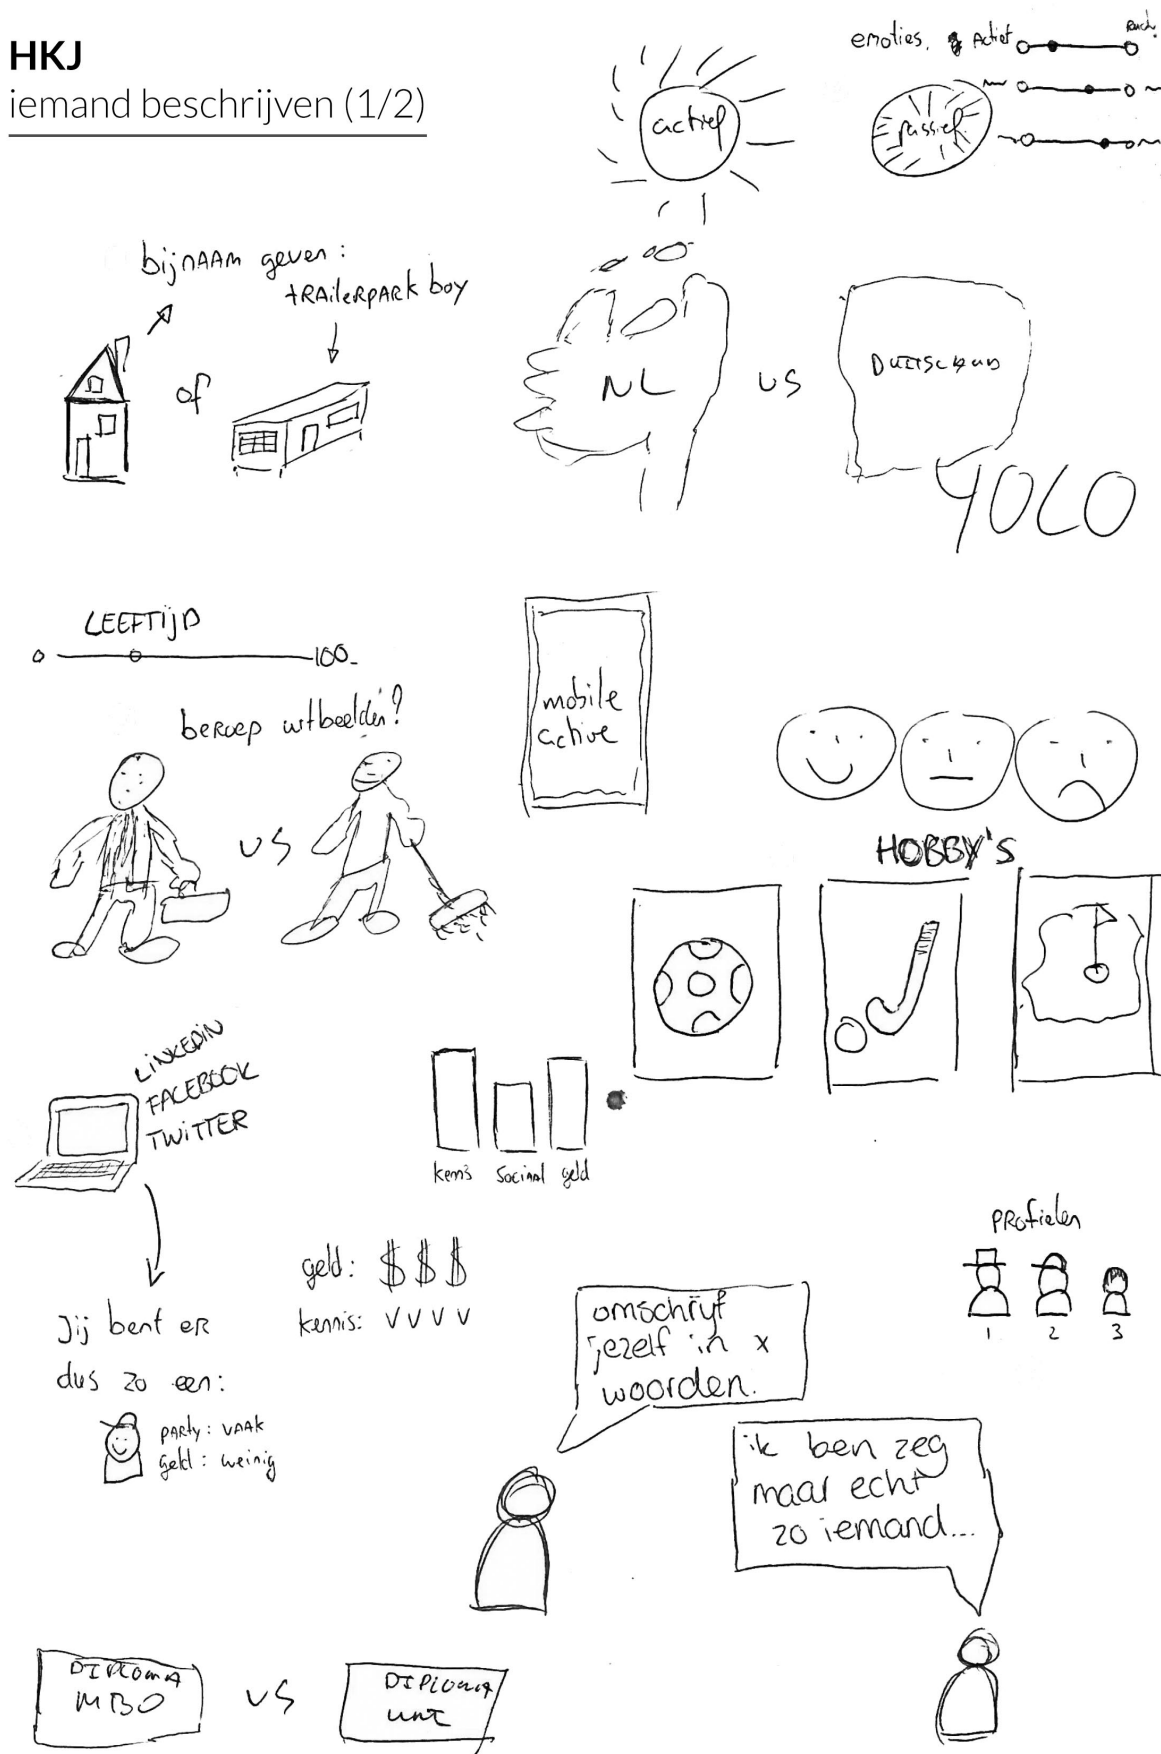 HKJ
iemand beschrijven (1/2)
emoties. Actief
actief
passief
bijnAAm geven:
tRAileRpARk boy
of
NL
vs
DUITSLAND
YOLO
LEEFTIJD
0
100
beroep uitbeelden?
vs
mobile
active
HOBBY'S
LINKEDIN
FACEBOOK
TWITTER
kennis sociaal geld
profielen
1 2 3
geld: $ $ $
kennis: V V V V
Jij bent er
dus zo een:
party: vaak
geld: weinig
omschrijf
jezelf in x
woorden.
ik ben zeg
maar echt
zo iemand...
DIPLOMA
MBO
vs
DIPLOMA
UNI